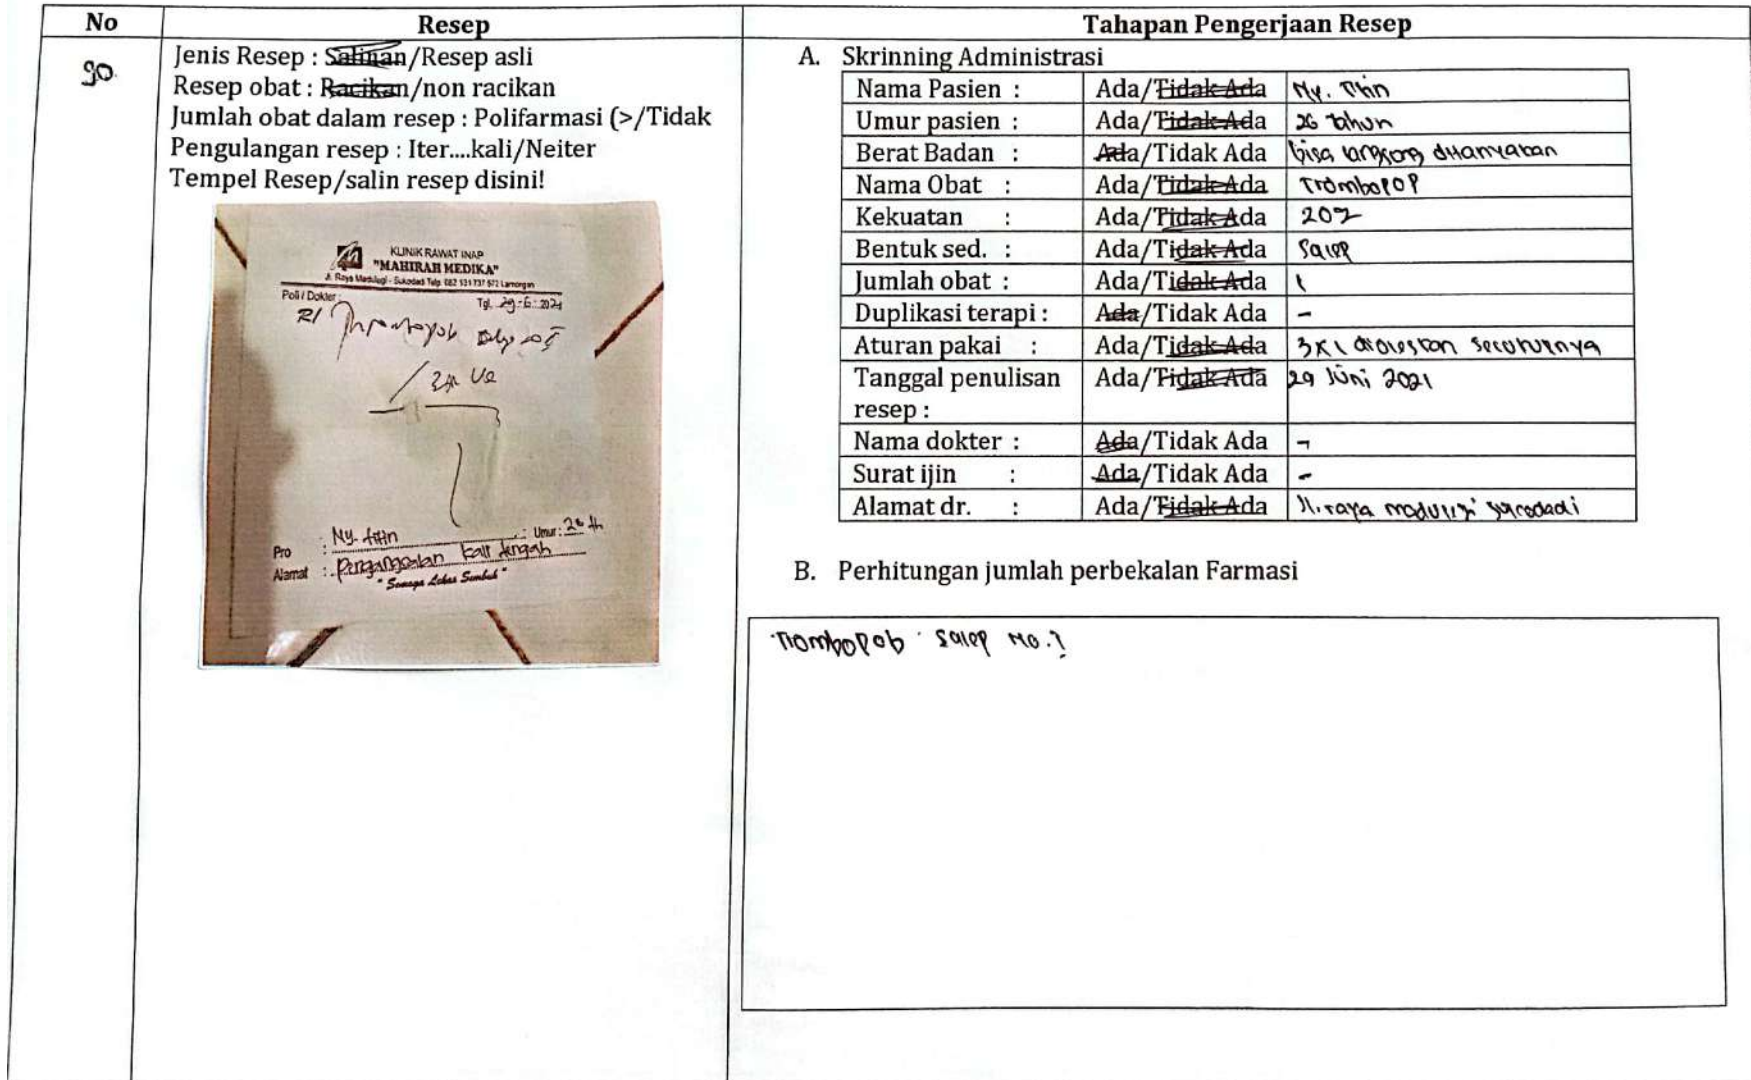 No Resep Tahapan Pengerjaan Resep
90.
Jenis Resep : Salinan/Resep asli
Resep obat : Racikan/non racikan
Jumlah obat dalam resep : Polifarmasi (>/Tidak
Pengulangan resep : Iter....kali/Neiter
Tempel Resep/salin resep disini!
KLINIK RAWAT INAP
"MAHIRAH MEDIKA"
Jl. Raya Madulegi - Sukodadi Telp. 082 131 737 572 Lamongan
Poli / Dokter :
Tgl. 29-6-2021
R/
Pro : Ny. titin Umur : 26 th
Alamat : Pengangsalan kali tengah
" Semoga Lekas Sembuh "
A. Skrinning Administrasi
Nama Pasien : Ada/Tidak Ada Ny. Titin
Umur pasien : Ada/Tidak Ada 26 tahun
Berat Badan : Ada/Tidak Ada bisa langsung ditanyakan
Nama Obat : Ada/Tidak Ada Trombopop
Kekuatan : Ada/Tidak Ada 20
Bentuk sed. : Ada/Tidak Ada Salep
Jumlah obat : Ada/Tidak Ada 1
Duplikasi terapi : Ada/Tidak Ada -
Aturan pakai : Ada/Tidak Ada 3x1 dioleskan secukupnya
Tanggal penulisan Ada/Tidak Ada 29 Juni 2021
resep :
Nama dokter : Ada/Tidak Ada -
Surat ijin : Ada/Tidak Ada -
Alamat dr. : Ada/Tidak Ada Jl. raya madulegi sucodadi
B. Perhitungan jumlah perbekalan Farmasi
Trombopob salep No. 1